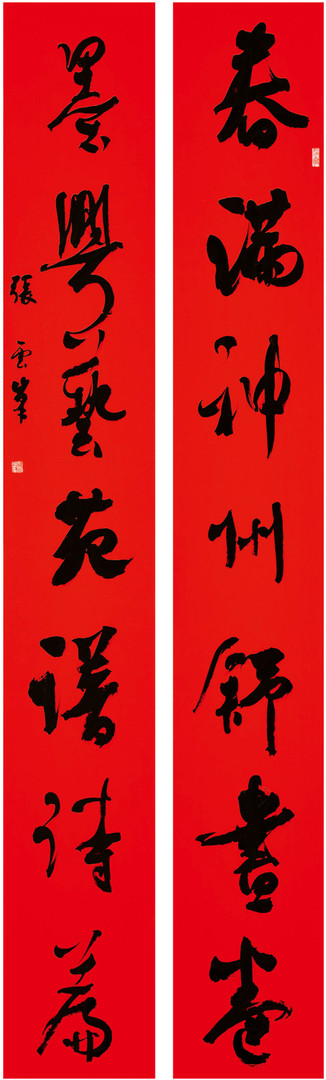 春滿神州舒畫卷
墨興藝苑譜詩篇
張雲峯